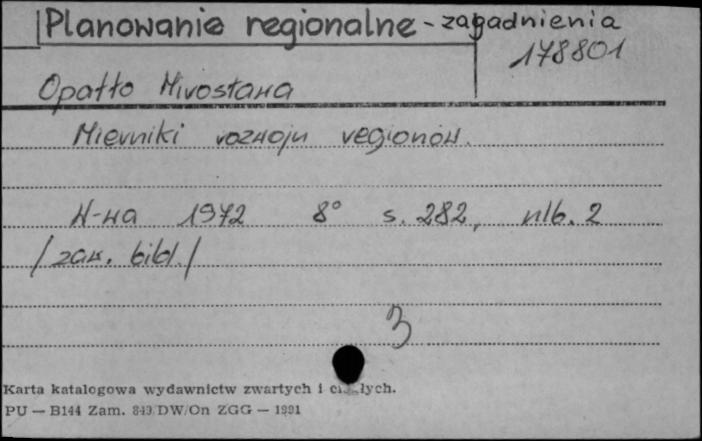 Planowanie regionalne - zagadnienia
178801
Opałło Mirosława
Mierniki rozwoju regionów.
W-wa 1972 8° s. 282, nlb. 2
/zaw. bibl./
3
Karta katalogowa wydawnictw zwartych i ciągłych.
PU — B144 Zam. 849/DW/On ZGG — 1981